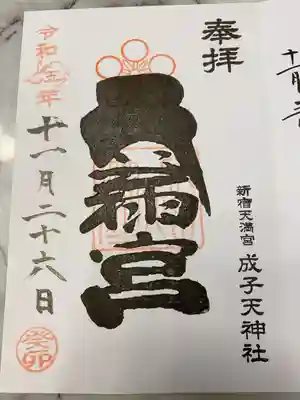 奉拝
新宿天満宮
成子天神社
天満宮
令和五年
十一月二十六日
癸卯